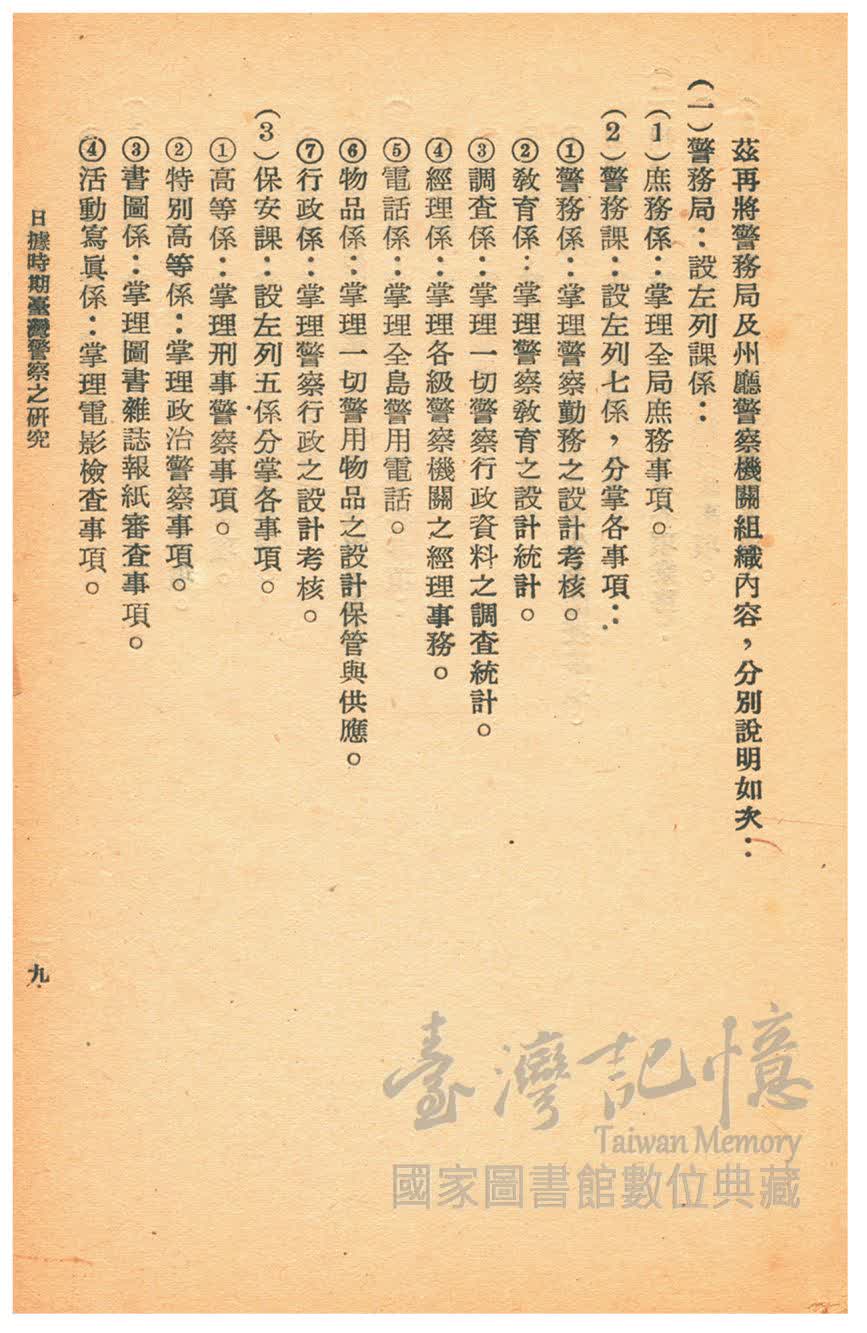 茲再將警務局及州廳警察機關組織內容，分別說明如次：
(一)警務局：設左列課係：
(1)庶務係：掌理全局庶務事項。
(2)警務課：設左列七係，分掌各事項：
①警務係：掌理警察勤務之設計考核。
②教育係：掌理警察教育之設計統計。
③調查係：掌理一切警察行政資料之調查統計。
④經理係：掌理各級警察機關之經理事務。
⑤電話係：掌理全島警用電話。
⑥物品係：掌理一切警用物品之設計保管與供應。
⑦行政係：掌理警察行政之設計考核。
(3)保安課：設左列五係分掌各事項。
①高等係：掌理刑事警察事項。
②特別高等係：掌理政治警察事項。
③書圖係：掌理圖書雜誌報紙審查事項。
④活動寫眞係：掌理電影檢查事項。
日據時期臺灣警察之研究
九
臺灣記憶
Taiwan Memory
國家圖書館數位典藏